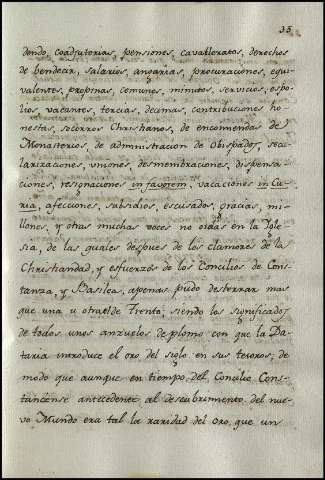 35
dondo, coadjutorias, pensiones, cavalleratos, derechos
de bendecir, salarios, angarias, procuraciones, equi-
valentes, propinas, comunes, minutos, servicios, espo-
lios, vacantes, tercias, decimas, contribuciones ho-
nestas, socorros Christianos, de encomendas de
Monasterios, de administracion de Obispados, secu-
larizaciones, uniones, desmembraciones, dispensa-
ciones, resignaciones in favorem, vacaciones in Cu-
ria, afecciones, subsidios, escusados, gracias, mi-
llones, y otras muchas voces no oidas en la Igle-
sia, de las quales despues de los clamores de la
Christiandad, y esfuerzos de los Concilios de Cons-
tanza, y Basilea, apenas pudo desterrar mas
que una u otra el de Trento; siendo los significados
de todos unos anzuelos de plomo con que la Da-
taria introduce el oro del siglo en sus tesoros; de
modo que aunque en tiempo del Concilio Cons-
tanciense antecedente al descubrimiento del nue-
vo Mundo era tal la raridad del oro, que un